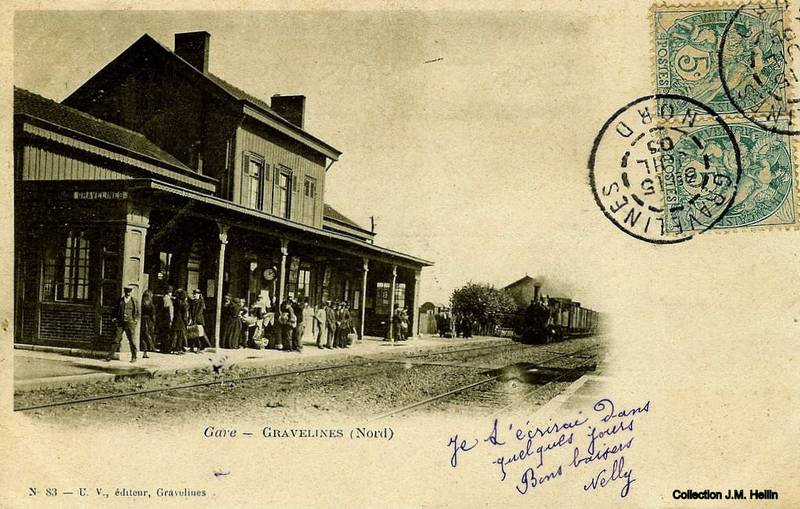 5c
POSTES
GRAVELINES
NORD
5
JUIL
05
POSTES
GRAVELINES
Gare — GRAVELINES (Nord)
Je t'écrirai dans
quelques jours
Bons baisers
Nelly
N° 83 — U. V., éditeur, Gravelines
Collection J.M. Hellin